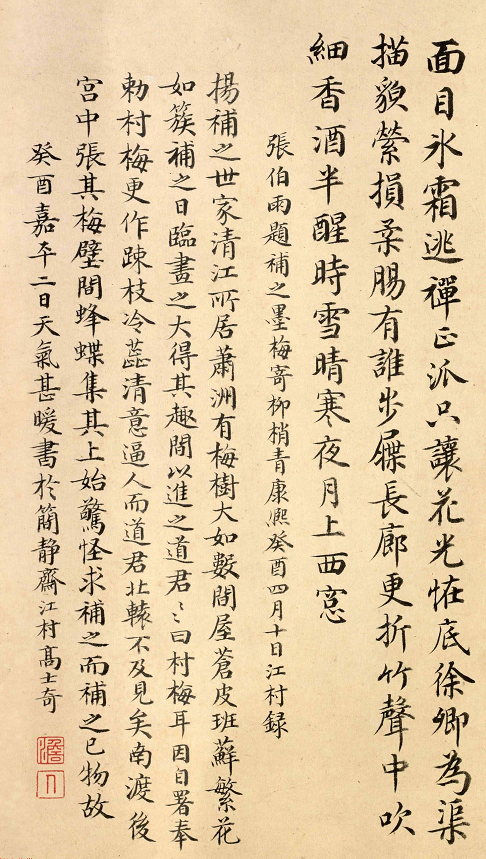 面目氷霜逃禪正派只讓花光恠底徐卿為渠
描貌縈損柔腸有誰步屧長廊更折竹聲中吹
細香酒半醒時雪晴寒夜月上西窓
張伯雨題補之墨梅寄柳梢青康熈癸酉四月十日江村録
揚補之世家清江所居蕭洲有梅樹大如數間屋蒼皮班蘚繁花
如簇補之日臨畫之大得其趣間以進之道君〻曰村梅耳因自署奉
勅村梅更作疎枝冷蕊清意逼人而道君北轅不及見矣南渡後
宮中張其梅壁間蜂蝶集其上始驚怪求補之而補之已物故
癸酉嘉平二日天氣甚暖書於簡静齋江村高士奇
澹人